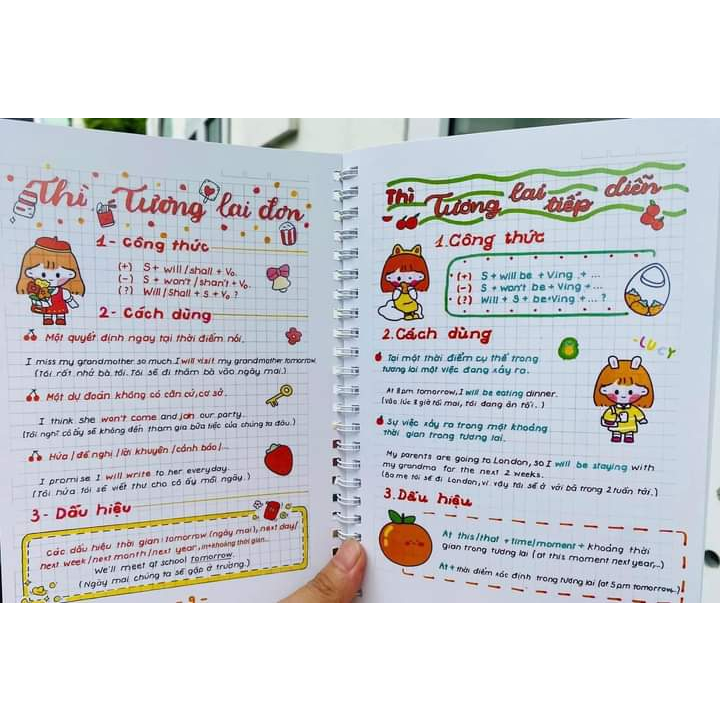 Thì Tương lai đơn
1- Công thức
(+) S + will / shall + V₀
(-) S + won't / shan't + V₀.
(?) Will / Shall + S + V₀ ?
2- Cách dùng
Một quyết định ngay tại thời điểm nói.
I miss my grandmother so much. I will visit my grandmother tomorrow.
(Tôi rất nhớ bà tôi. Tôi sẽ đi thăm bà vào ngày mai.)
Một dự đoán không có căn cứ, cơ sở.
I think she won't come and join our party.
(Tôi nghĩ cô ấy sẽ không đến tham gia bữa tiệc của chúng ta đâu.)
Hứa / đề nghị / lời khuyên / cảnh báo /...
I promise I will write to her everyday.
(Tôi hứa tôi sẽ viết thư cho cô ấy mỗi ngày.)
3- Dấu hiệu
Các dấu hiệu thời gian: tomorrow (ngày mai), next day/
next week / next month / next year, in + khoảng thời gian...
We'll meet at school tomorrow.
(Ngày mai chúng ta sẽ gặp ở trường.)
- 9 -
Thì Tương lai tiếp diễn
1. Công thức
(+) S + will be + Ving + ...
(-) S + won't be + Ving + ...
(?) Will + S + be + Ving + ... ?
2. Cách dùng
-LUCY
Tại một thời điểm cụ thể trong
tương lai một việc đang xảy ra.
At 8 pm tomorrow, I will be eating dinner.
(vào lúc 8 giờ tối mai, tôi đang ăn tối..)
Sự việc xảy ra trong một khoảng
thời gian trong tương lai.
My parents are going to London, so I will be staying with
my grandma for the next 2 weeks.
(Ba mẹ tôi sẽ đi London, vì vậy tôi sẽ ở với bà trong 2 tuần tới.)
3. Dấu hiệu
At this/that + time/moment + khoảng thời
gian trong tương lai (at this moment next year,..)
At + thời điểm xác định trong tương lai (at 5 pm tomorrow..)